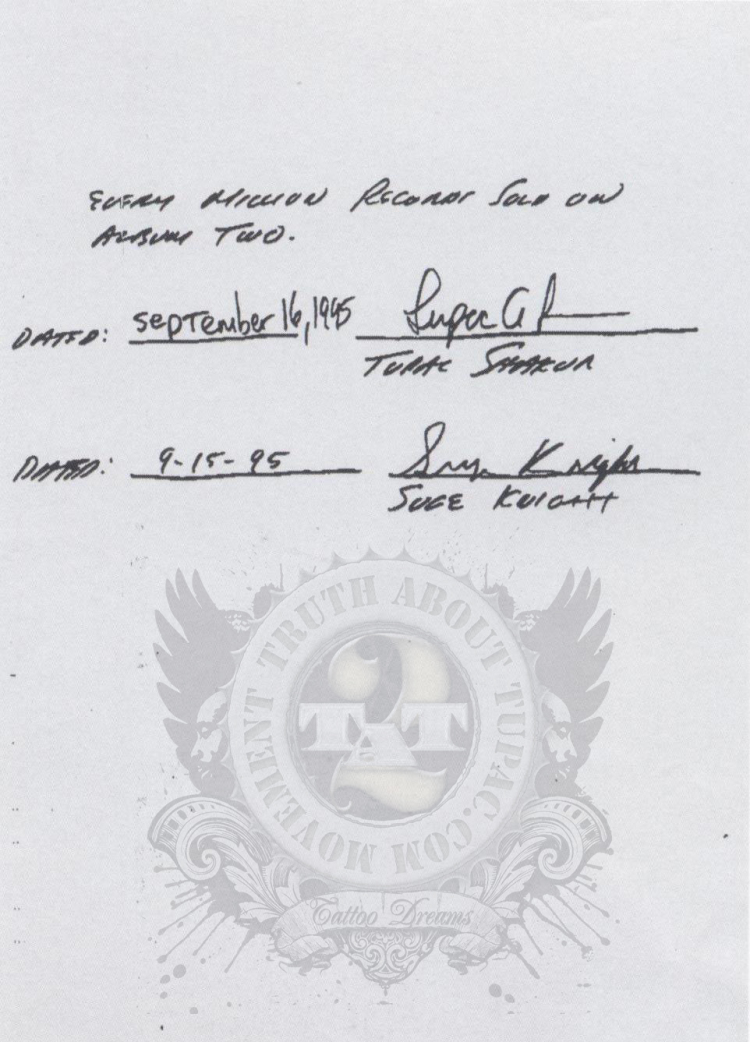 EVERY MILLION RECORDS SOLD ON
ALBUM TWO.
DATED: September 16, 1995 Tupac A S
TUPAC SHAKUR
DATED: 9-15-95 Suge Knight
SUGE KNIGHT
TRUTH ABOUT TUPAC.COM MOVEMENT
2
TAT
Tattoo Dreams